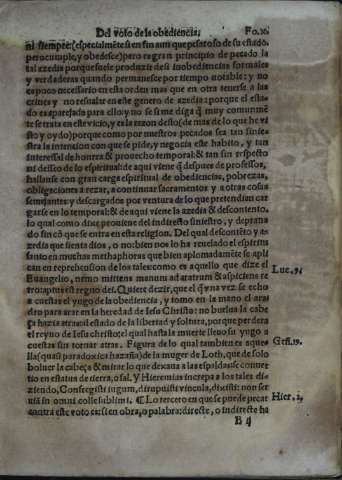 Del voto de la obediencia, Fo.10.
ni siempre: (especialmẽte si en fin aun que pesaroso de su estado,
pero cumple, y obedesce) pero regra m principio de pecado la
tal azedia porque suele produzir desi inobediencias formales
y verdaderas quando permanesce por tiempo notable: y no
es poco necessario en esta orden mas que en otra tenerse a las
crines y no resualar en este genero de azedia: porque el esta-
do es aparejado para ello y no se si me diga q̃ muy comunmẽ
te se trata en este vicio, y es la razon desto (de mas de lo que he vi
sto y oydo) porque como por nuestros pecados sea tan sinies-
tra la intencion con que se pide, y negocia este habito, y tan
interessal de honrra & prouecho temporal: & tan sin respecto
ni desseo de lo espiritual: de aqui viene q̃ despues de professos,
hallanse con gran carga espiritual de obediencias, pobrezas,
obligaciones a rezar, a continuar sacramentos y a otras cosas
semejantes: y descargados por ventura de lo que pretendian car
garse en lo temporal: & de aqui viene la azedia & descontento,
lo qual como dixe prouiene del indirecto siniestro, y deprava
do fin cõ que se entra en esta religion. Del qual descontẽto y a-
zedia que sienta dios, o no: bien nos lo ha reuelado el espiritu
santo en muchas methaphoras que bien aplomadamẽte se apli
can en reprehension de los tales: como es aquello que dize el
Euangelio, nemo mittens manum ad aratrum & aspiciens re Luc.9.
tro: aptus est regno dei. Quiere dezir, que el q̃ vna vez se echo
a cuestas el yugo de la obediencia, y tomo en la mano el ara-
dro para arar en la heredad de Iesu Christo: no buelua la cabe
ça hazia atras: al estado de la libertad y soltura, porque perdera
el reyno de Iesu christo: el qual hasta la muerte lleuo su yugo a
cuestas sin tornar atras. Figura de lo qual tambien es aque- Gen.19.
lla (quasi paradoxica hazaña) de la muger de Loth, que de solo
boluer la cabeça & mirar lo que dexaua a las espaldas se conuer
tio en estatua de sierra, o sal. Y Hieremias increpa a los tales di-
ziendo, Confregisti iugum, dirupuisti vincula, dixisti: non ser
uiã in omni colle sublimi. ¶ Lo tercero en que se puede pecar Hier.2.
contra este voto es: si en obra, o palabra: directe, o indirecte ha
B ij